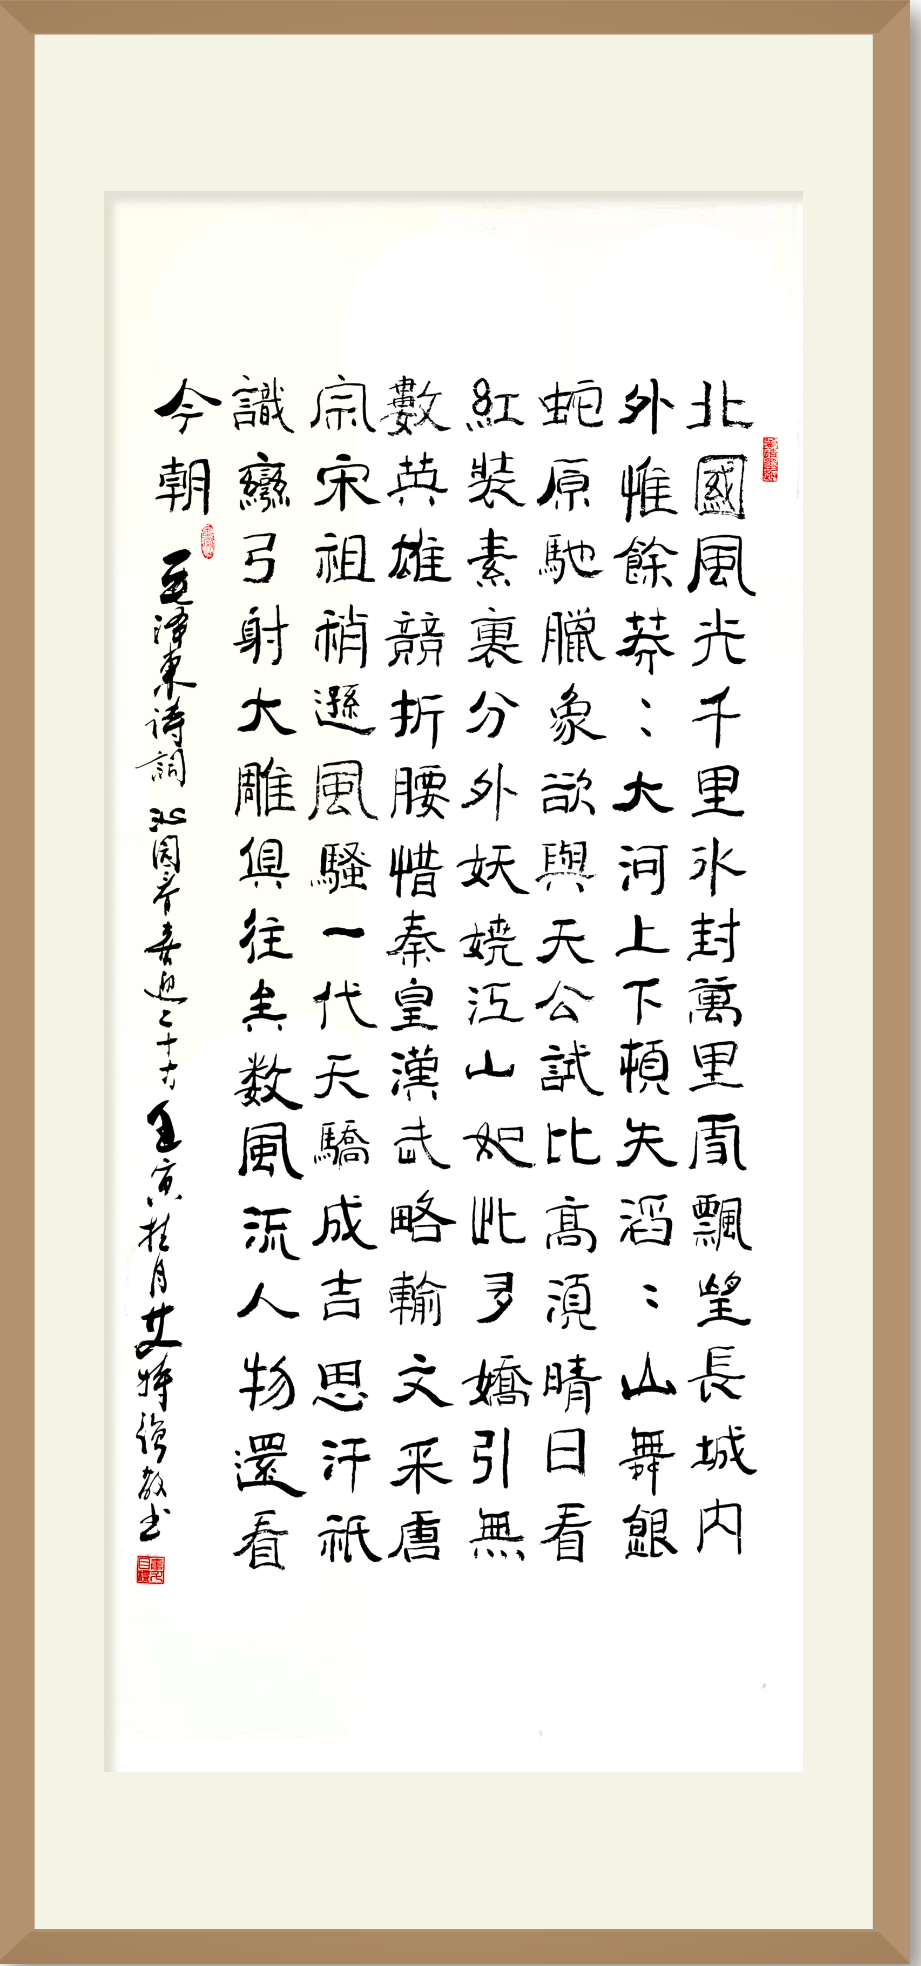 北國風光千里冰封萬里雪飄望長城内
外惟餘莽〻大河上下頓失滔〻山舞銀
蛇原馳臘象欲與天公試比高須晴日看
紅裝素裹分外妖嬈江山如此多嬌引無
數英雄競折腰惜秦皇漢武略輸文采唐
宗宋祖稍遜風騷一代天驕成吉思汗祇
識彎弓射大雕俱往矣数風流人物還看
今朝
毛澤東詩詞沁園春喜迎二十大壬寅桂月艾特强敬书